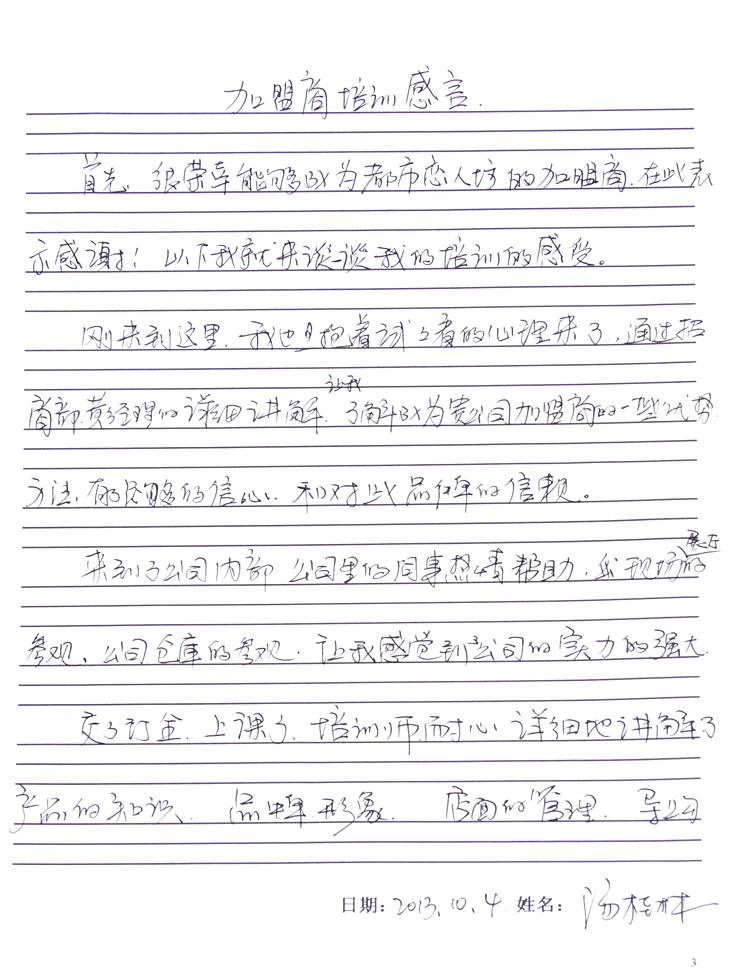 加盟商培训感言.
首先, 很荣幸能够成为都市恋人坊的加盟商.在此表
示感谢! 以下我就来谈谈我的培训的感受。
刚来到这里.我也抱着试看的心理来了,通过招
商部.黄经理的详细讲解.让我了解成为贵公司加盟商的一些优势.
方法.有足够的信心.和对此品牌的信赖。
来到了公司内部 公司里的同事热情帮助.现场展厅的
参观、公司仓库的参观.让我感觉到公司的实力的强大.
交了订金.上课了.培训师耐心详细地讲解了
产品的知识. 品牌形象. 店面的管理. 导购
日期: 2013.10.4 姓名: 汤桂林
3